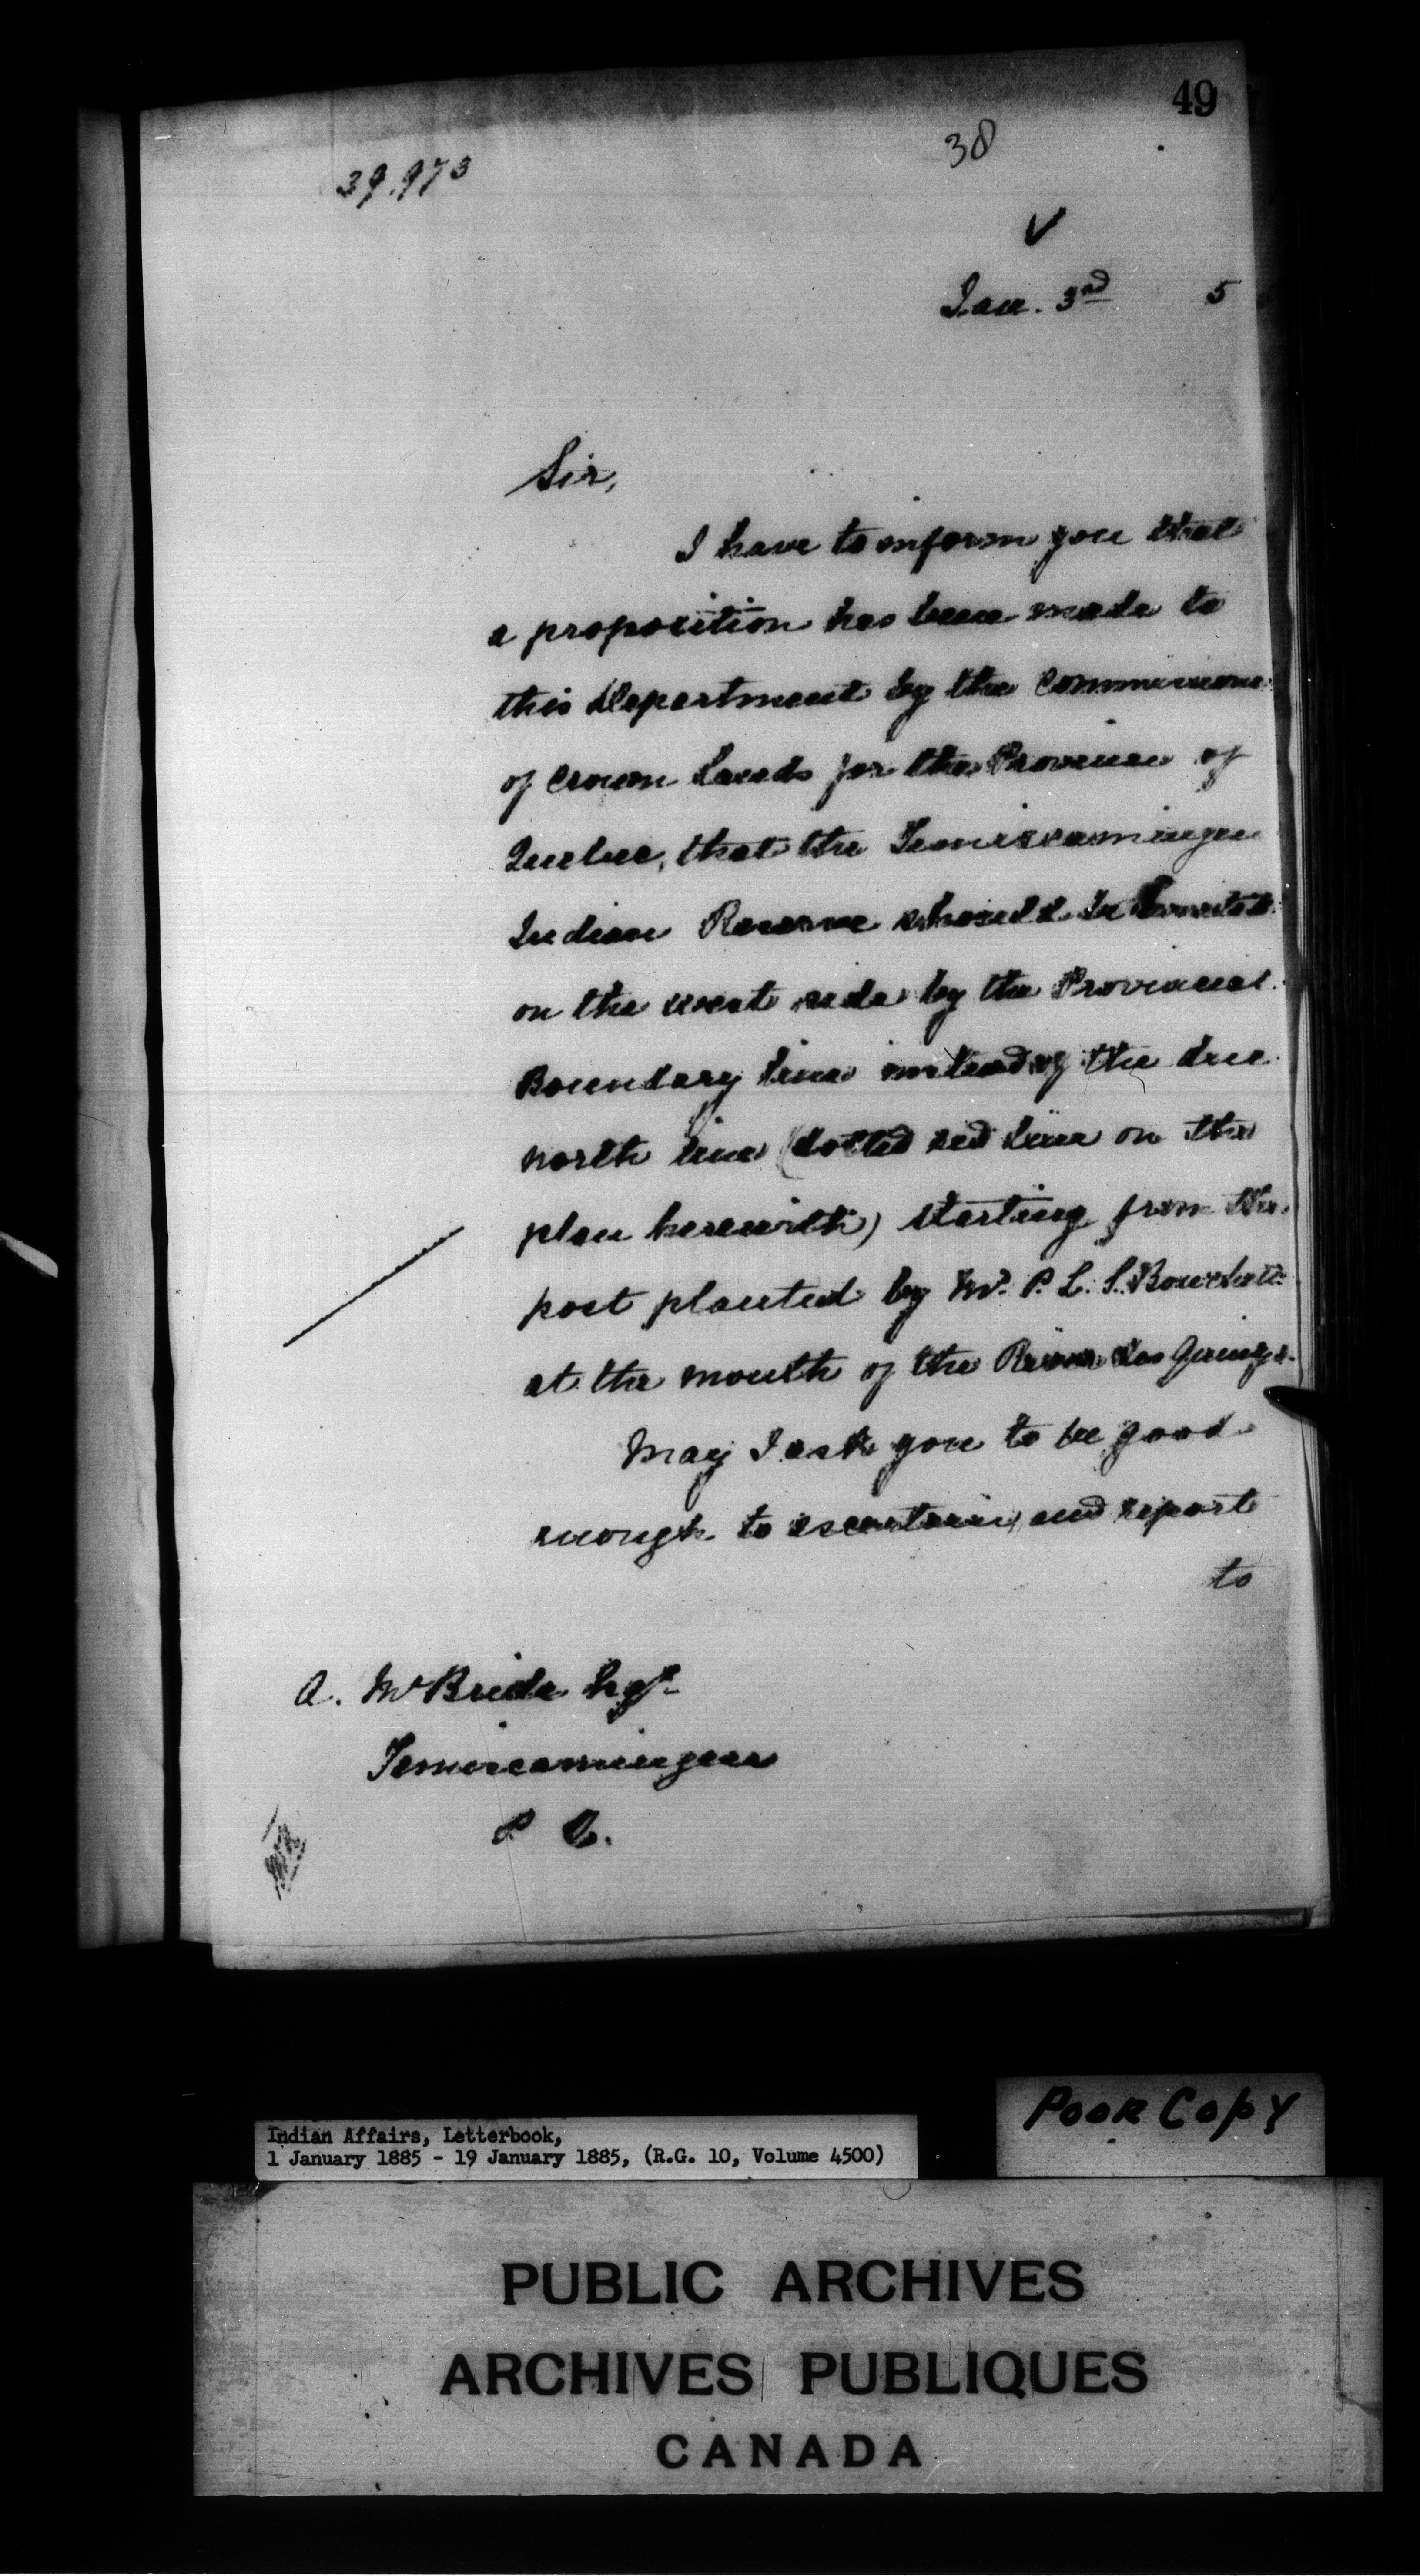 49
38
39.973
Jan. 3rd 5
Sir,
I have to inform you that
a proposition has been made to
this Department by the Commissioner
of Crown Lands for the Province of
Quebec, that the Temiscamingue
Indian Reserve should be
on the west side by the Provincial
Boundary line instead of the due
north line (dotted red line on the
plan herewith) starting from the
post planted by Mr. P. L. S.
at the mouth of the River des Quinze.
May I ask you to be good
enough to ascertain, and report
to
A. McBride Esqr
Temiscamingue
P Q.
Poor Copy
Indian Affairs, Letterbook,
1 January 1885 - 19 January 1885, (R.G. 10, Volume 4500)
PUBLIC ARCHIVES
ARCHIVES PUBLIQUES
CANADA